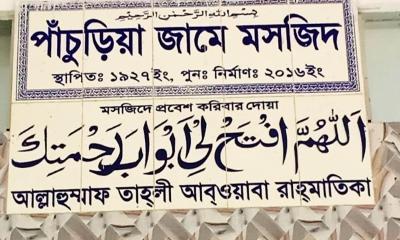 بِسْمِ اللهِ الرَّحْمٰنِ الرَّحِيْمِ
পাঁচুড়িয়া জামে মসজিদ
স্থাপিতঃ ১৯২৭ইং, পুনঃ নির্মাণঃ ২০১৬ইং
মসজিদে প্রবেশ করিবার দোয়া
اَللّٰهُمَّ افْتَحْ لِىْ اَبْوَابَ رَحْمَتِكَ
আল্লাহুম্মাফ তাহ্‌লী আব্‌ওয়াবা রাহ্‌মাতিকা